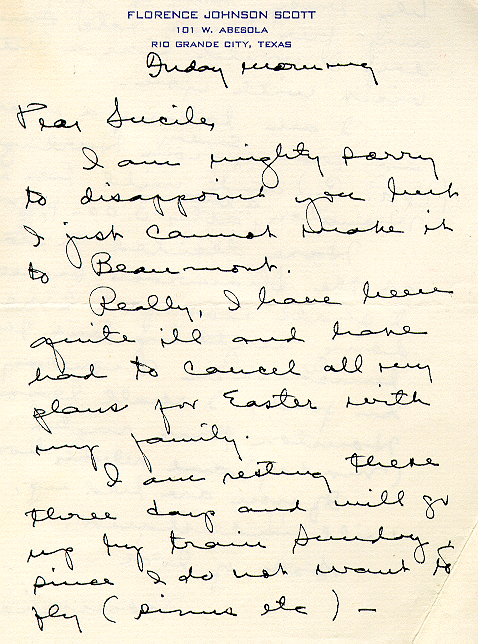 FLORENCE JOHNSON SCOTT
101 W. ABESOLA
RIO GRANDE CITY, TEXAS
Friday morning
Dear Lucile,
I am mighty sorry
to disappoint you but
I just cannot make it
to Beaumont.
Really, I have been
quite ill and have
had to cancel all my
plans for Easter with
my family.
I am resting these
three days and will go
up by train Sunday,
since I do not want to
fly ( sinus etc ) —